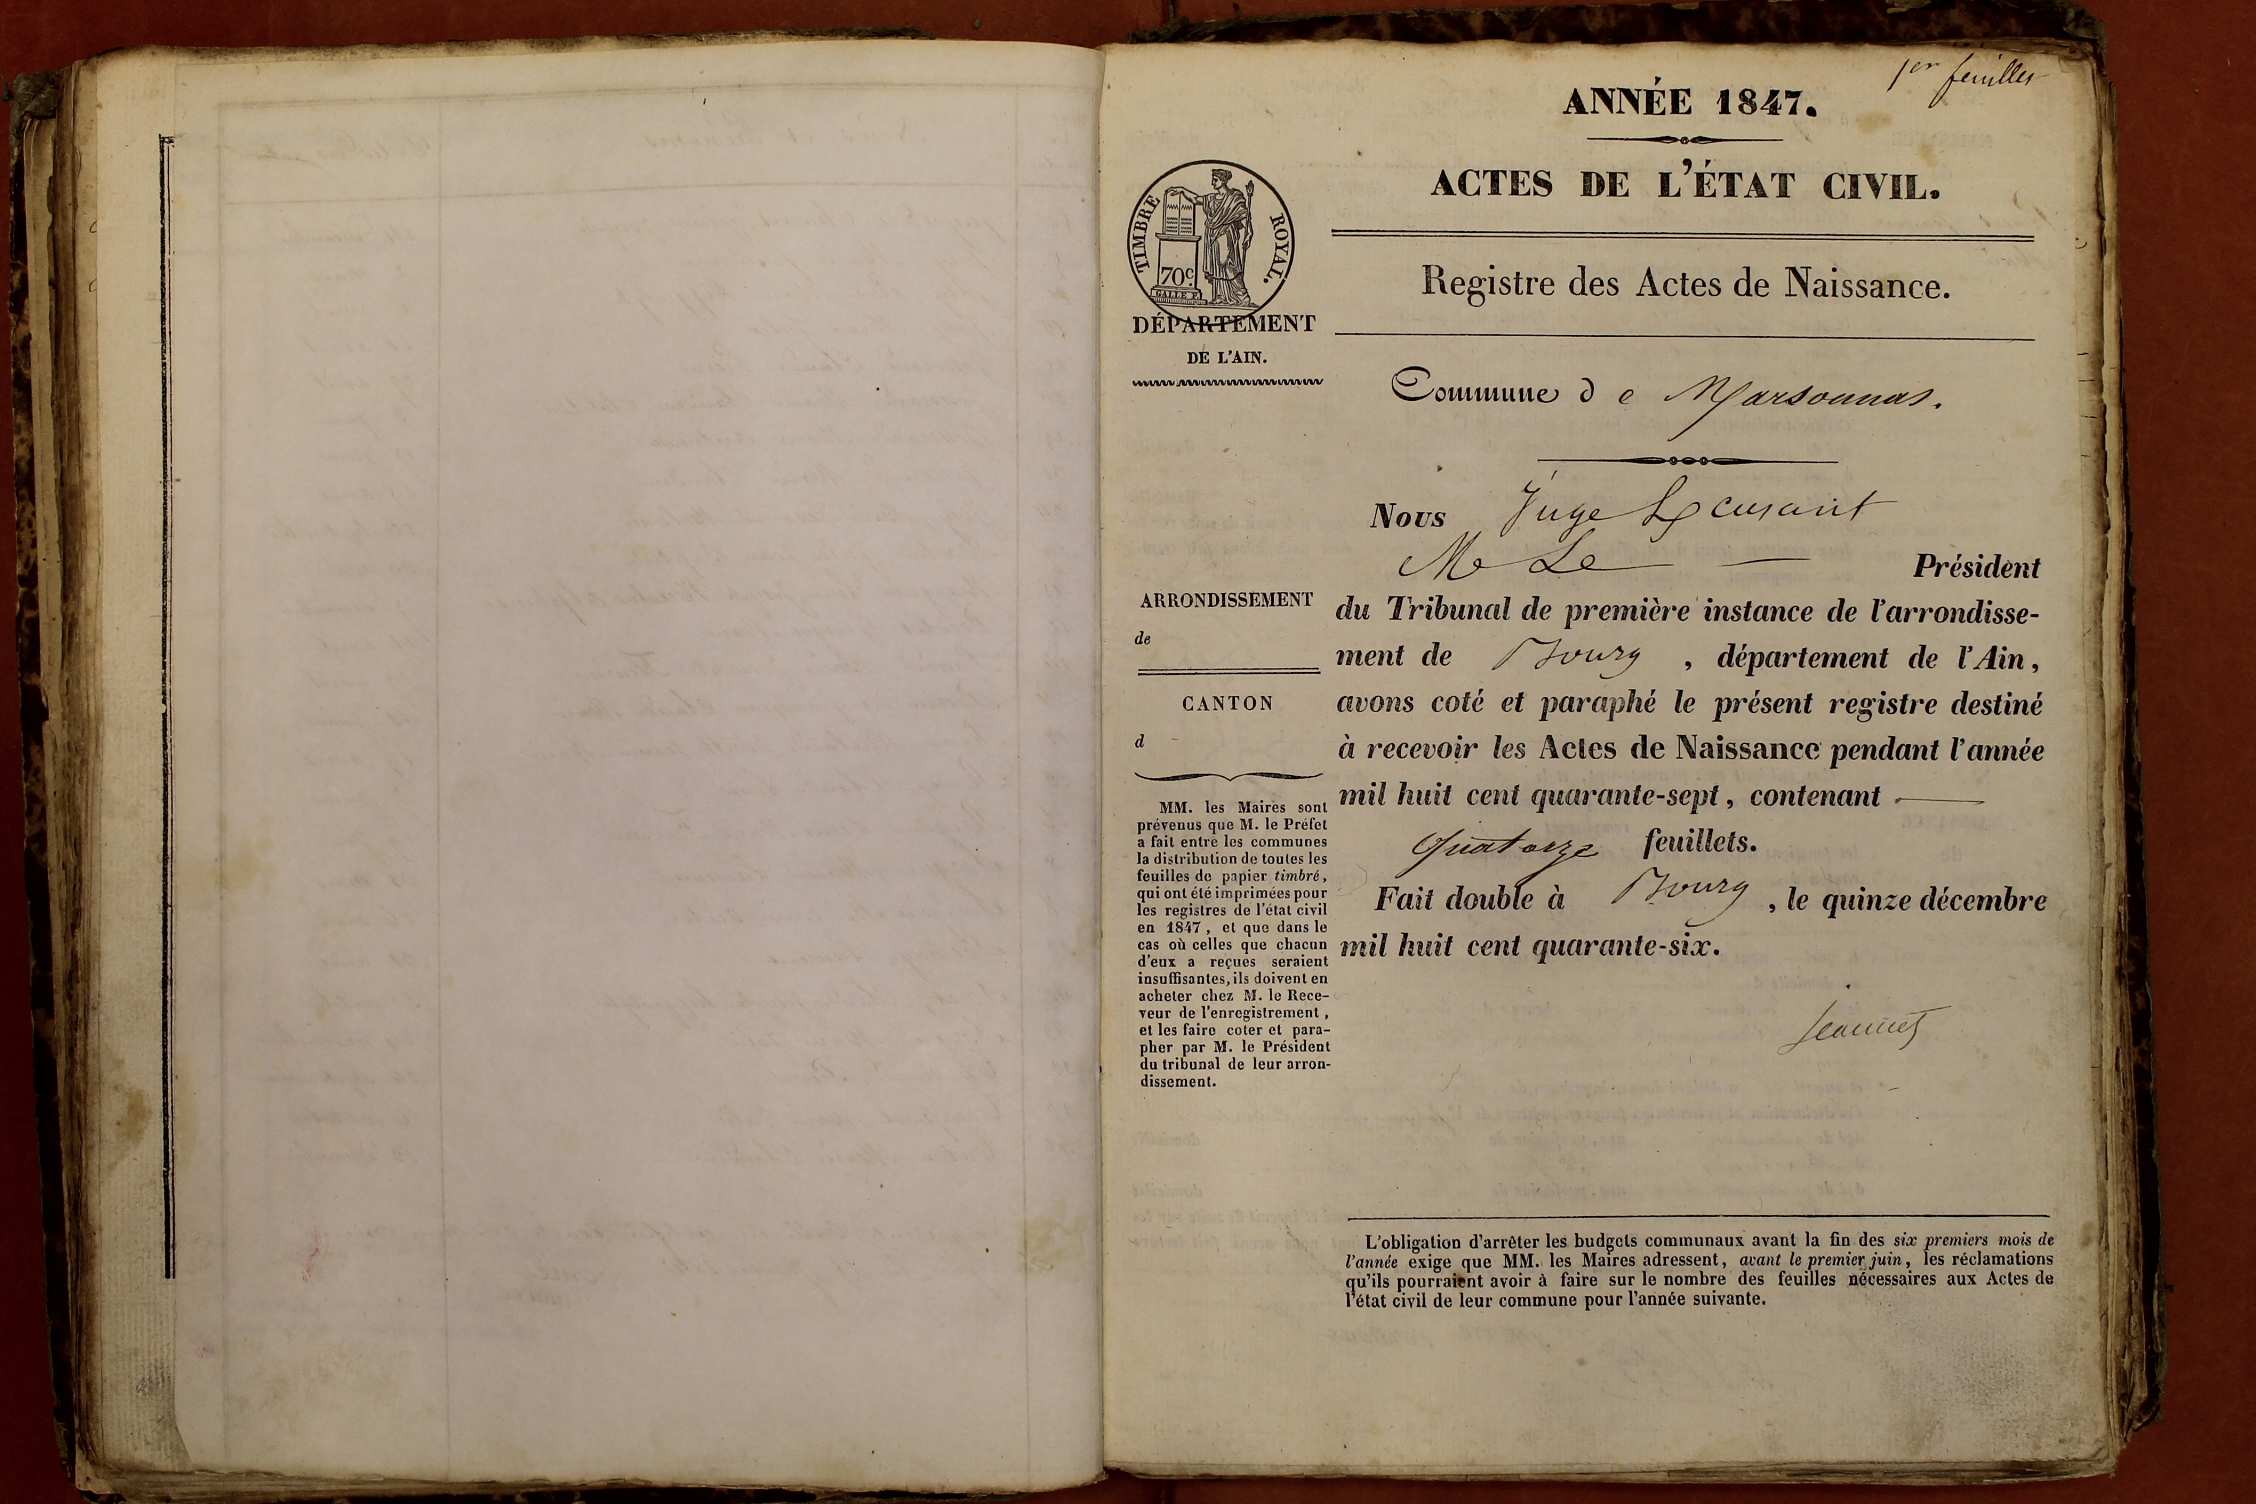 1er feuillet
ANNÉE 1847.
ACTES DE L'ÉTAT CIVIL.
TIMBRE ROYAL.
70c
GALLE F.
DÉPARTEMENT
DE L'AIN.
Registre des Actes de Naissance.
Commune de Marsonnas.
Nous Juge
M Le Président
du Tribunal de première instance de l'arrondisse-
ment de Bourg, département de l'Ain,
avons coté et paraphé le présent registre destiné
à recevoir les Actes de Naissance pendant l'année
mil huit cent quarante-sept, contenant
quatorze feuillets.
Fait double à Bourg, le quinze décembre
mil huit cent quarante-six.
Jeannet
ARRONDISSEMENT
de
CANTON
d
MM. les Maires sont
prévenus que M. le Préfet
a fait entre les communes
la distribution de toutes les
feuilles de papier timbré,
qui ont été imprimées pour
les registres de l'état civil
en 1847, et que dans le
cas où celles que chacun
d'eux a reçues seraient
insuffisantes, ils doivent en
acheter chez M. le Rece-
veur de l'enregistrement,
et les faire coter et para-
pher par M. le Président
du tribunal de leur arron-
dissement.
L'obligation d'arrêter les budgets communaux avant la fin des six premiers mois de
l'année exige que MM. les Maires adressent, avant le premier juin, les réclamations
qu'ils pourraient avoir à faire sur le nombre des feuilles nécessaires aux Actes de
l'état civil de leur commune pour l'année suivante.